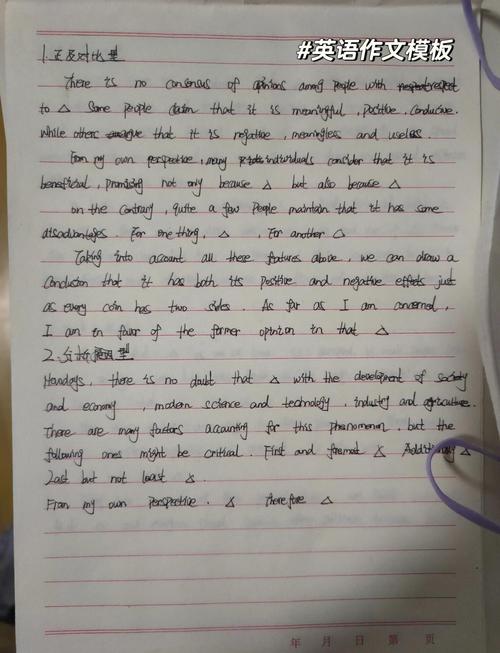 #英语作文模板
1.正反对比型
There is no consensus of opinions among people with respect
to △ Some people claim that it is meaningful, positive, conducive.
While others argue that it is negative, meaningless and useless
From my own perspective, many individuals consider that it is
beneficial, promising not only because △ but also because △
on the contrary, quite a few people maintain that it has some
disadvantages. For one thing, △, For another △
Taking into account all these features above, we can draw a
conclusion that it has both its positive and negative effects just
as every coin has two sides. As far as I am concerned,
I am in favor of the former opinion in that △
2.分析原因型
Nowdays, there is no doubt that △ with the development of society
and economy, modern science and technology, industry and agriculture.
There are many factors accounting for this phenomenon, but the
following ones might be critical. First and foremost △ Additionally △
Last but not least △.
From my own perspective. △ therefore △
年 月 日 第 页